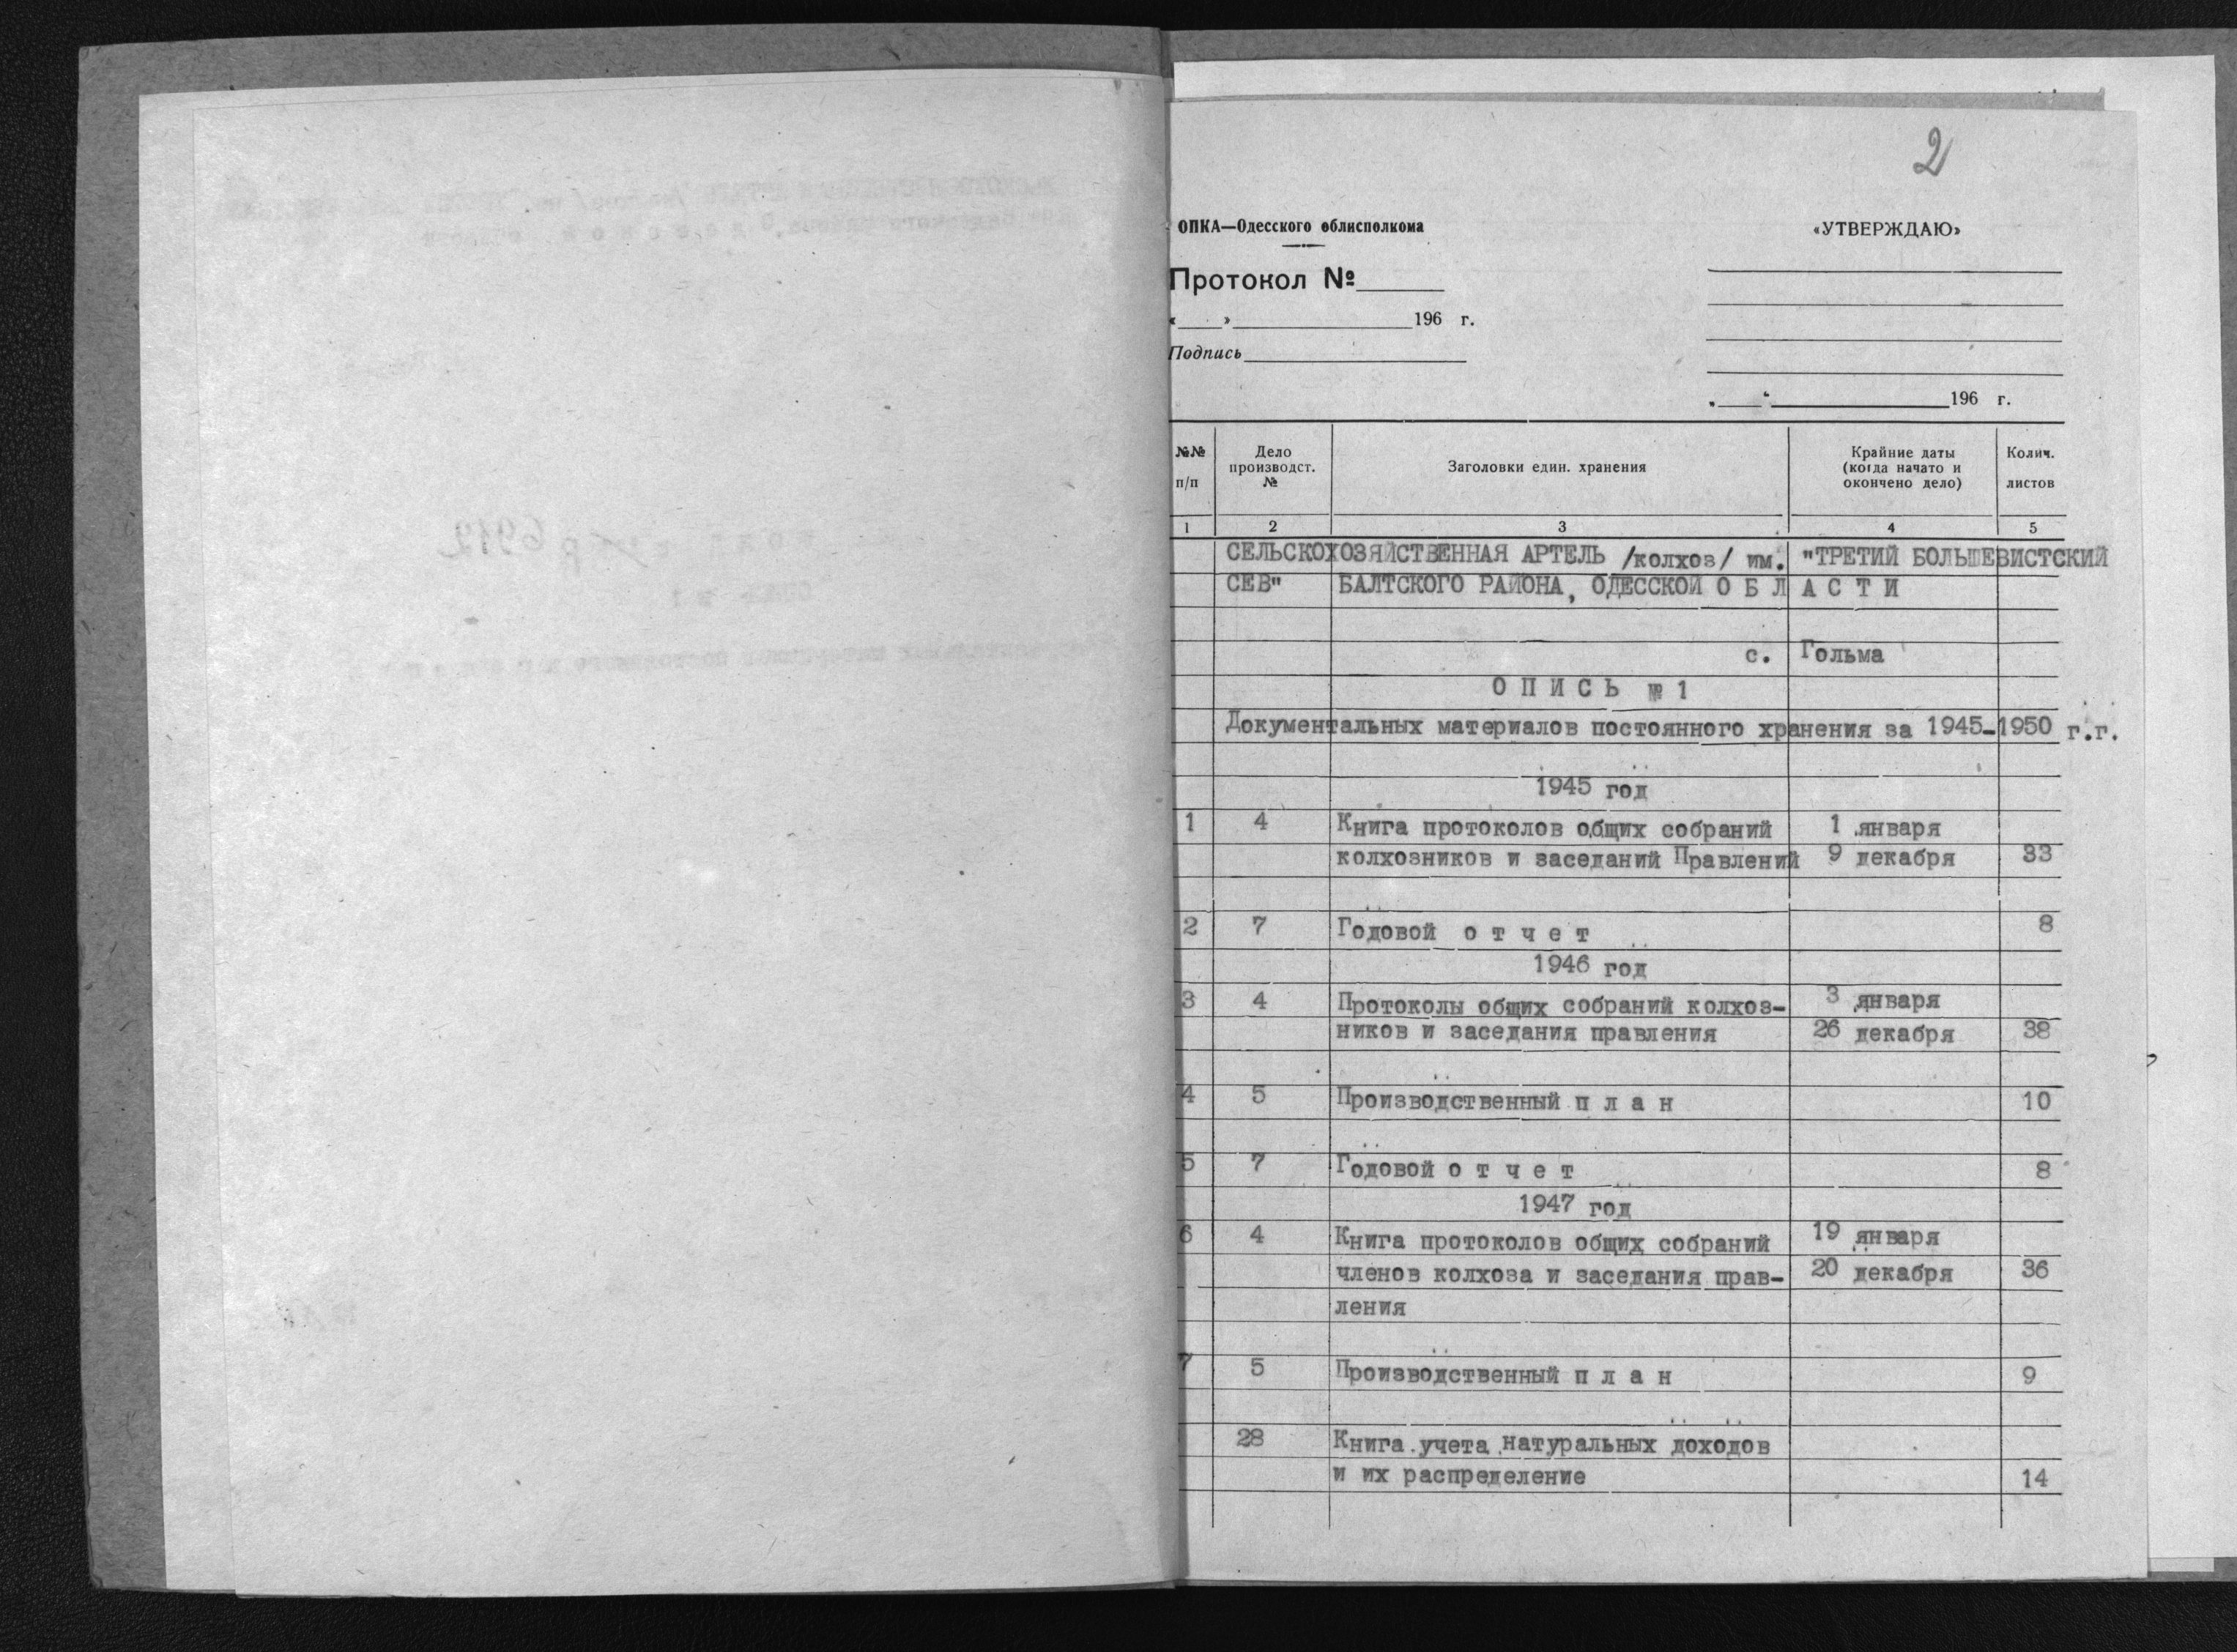 2
ОПКА—Одесского облисполкома
«УТВЕРЖДАЮ»
Протокол №
« » 196 г.
Подпись
„ “ 196 г.
№№ п/п
Дело производст. №
Заголовки един. хранения
Крайние даты (когда начато и окончено дело)
Колич. листов
1 2 3 4 5
СЕЛЬСКОХОЗЯЙСТВЕННАЯ АРТЕЛЬ /колхоз/ им. "ТРЕТИЙ БОЛЬШЕВИСТСКИЙ
СЕВ" БАЛТСКОГО РАЙОНА, ОДЕССКОЙ О Б Л А С Т И
с. Гольма
О П И С Ь № 1
Документальных материалов постоянного хранения за 1945-1950 г.г.
1945 год
1 4 Книга протоколов общих собраний 1 января
колхозников и заседаний Правлений 9 декабря 33
2 7 Годовой о т ч е т 8
1946 год
3 4 Протоколы общих собраний колхоз- 3 января
ников и заседания правления 26 декабря 38
4 5 Производственный п л а н 10
5 7 Годовой о т ч е т 8
1947 год
6 4 Книга протоколов общих собраний 19 января
членов колхоза и заседания прав- 20 декабря 36
ления
7 5 Производственный п л а н 9
28 Книга учета натуральных доходов
и их распределение 14